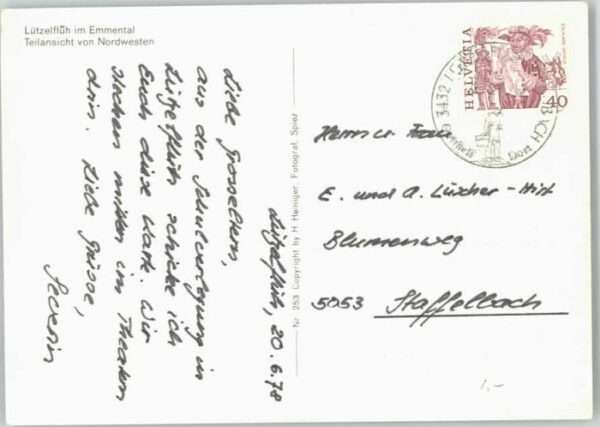 Lützelflüh im Emmental
Teilansicht von Nordwesten
Lützelflüh, 20.6.78
Liebe Grosseltern,
aus der Schulverlegung in
Lützelflüh schicke ich
Euch diese Karte. Wir
stecken mitten im Theatern
drin. Liebe Grüsse,
Severin
Nr. 253 Copyright by H. Heiniger, Fotograf, Spiez
HELVETIA
40
3432
CH
Dorf
Herrn u. Frau
E. und A. Lüscher-Hirt
Blumenweg
5053 Staffelbach
1.-